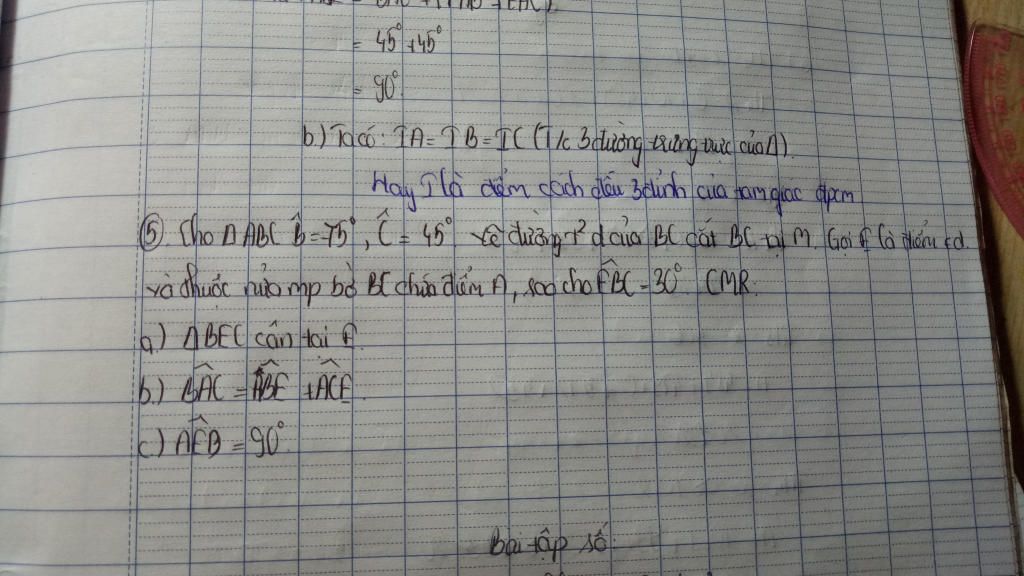 = 45° + 45°
= 90°
b.) Ta có: IA = IB = IC (T/c 3 đường trung trực của Δ).
Hay I là điểm cách đều 3 đỉnh của tam giác đpcm
⑤. Cho Δ ABC B̂ = 75°, Ĉ = 45° vẽ đường T² d của BC cắt BC tại M. Gọi E là điểm td.
và thuộc nửa mp bờ BC chứa điểm A, sao cho EBC = 30° CMR.
a.) Δ BEC cân tại E.
b.) BAC = ABE + ACE.
c.) AEB = 90°.
Bài tập số